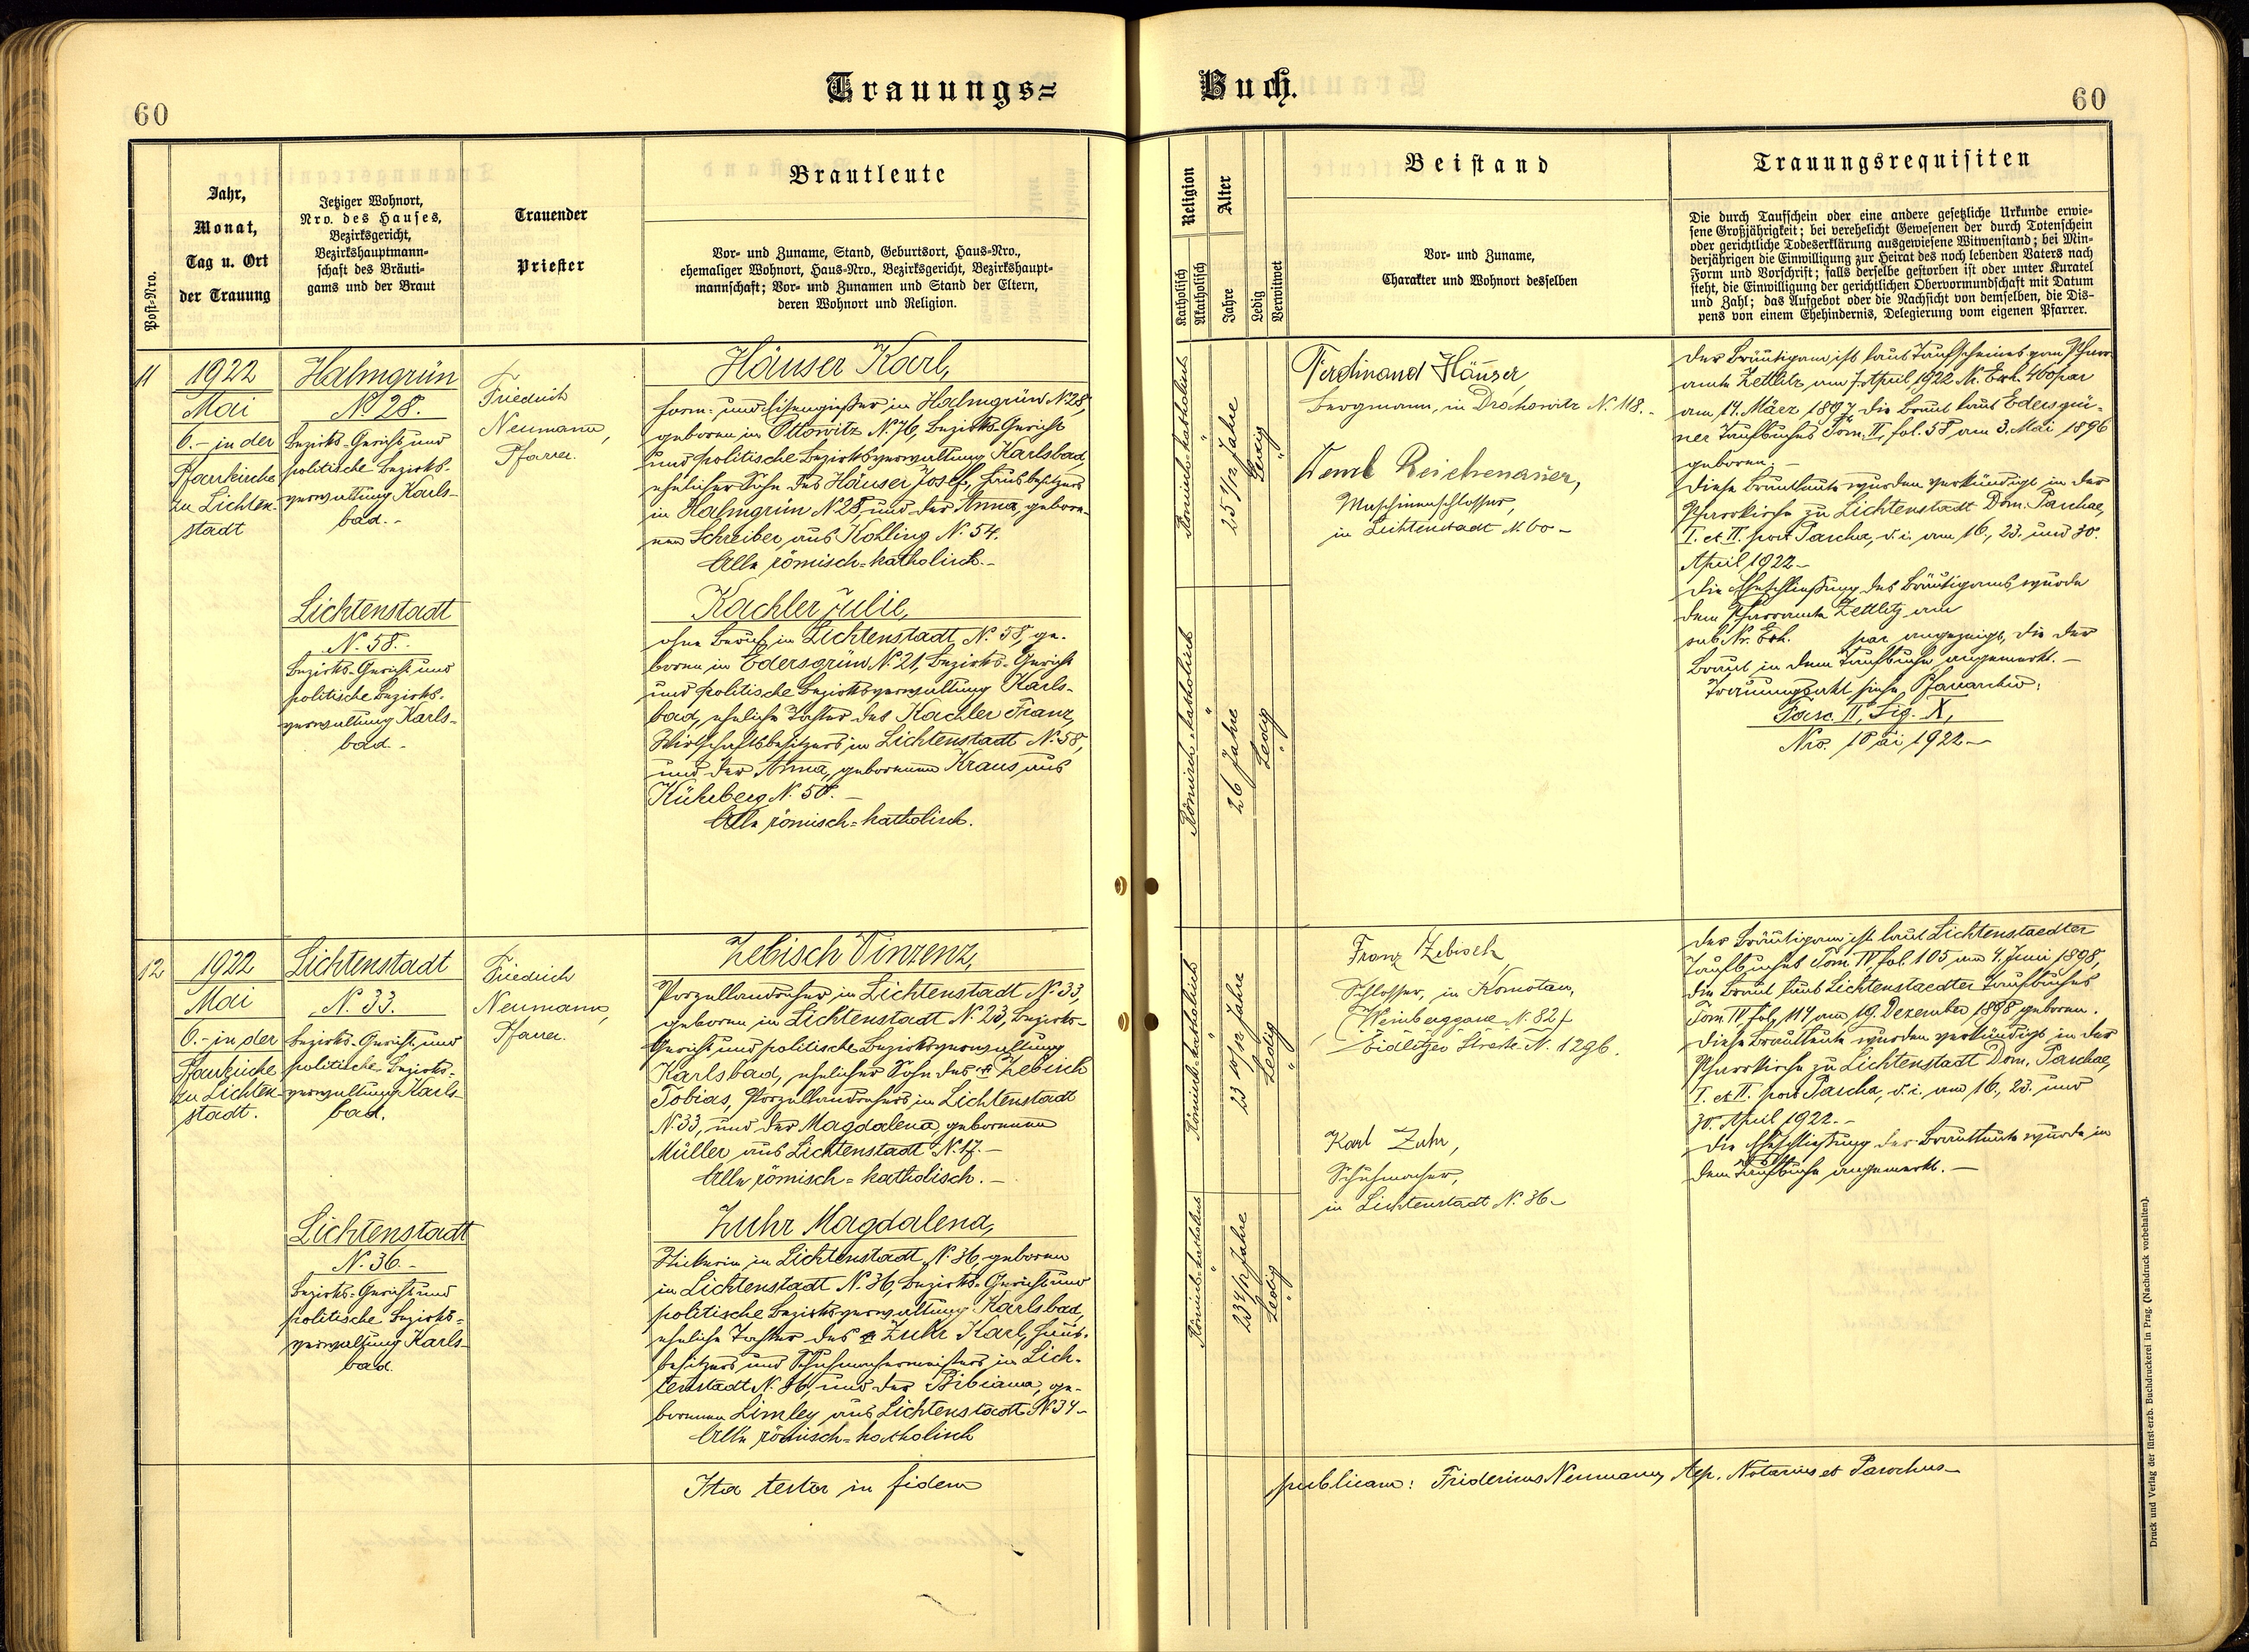 Trauungs=
Buch.
60
60
Post-Nro.
Jahr,
Monat,
Tag u. Ort
der Trauung
Jetziger Wohnort,
Nro. des Hauses,
Bezirksgericht,
Bezirkshauptmann-
schaft des Bräuti-
gams und der Braut
Trauender
Priester
Brautleute
Vor- und Zuname, Stand, Geburtsort, Haus-Nro.,
ehemaliger Wohnort, Haus-Nro., Bezirksgericht, Bezirkshaupt-
mannschaft; Vor- und Zunamen und Stand der Eltern,
deren Wohnort und Religion.
Religion
Katholisch
Akatholisch
Alter
Jahre
Ledig
Verwitwet
Beistand
Vor- und Zuname,
Charakter und Wohnort desselben
Trauungsrequisiten
Die durch Taufschein oder eine andere gesetzliche Urkunde erwie-
sene Großjährigkeit; bei verehelicht Gewesenen der durch Totenschein
oder gerichtliche Todeserklärung ausgewiesene Witwenstand; bei Min-
derjährigen die Einwilligung zur Heirat des noch lebenden Vaters nach
Form und Vorschrift; falls derselbe gestorben ist oder unter Kuratel
steht, die Einwilligung der gerichtlichen Obervormundschaft mit Datum
und Zahl; das Aufgebot oder die Nachsicht von demselben, die Dis-
pens von einem Ehehindernis, Delegierung vom eigenen Pfarrer.
11
1922
Mai
6. - in der
Pfarrkirche
zu Lichten-
stadt
Halmgrün
N. 28.
Bezirks-Gericht und
politische Bezirks-
verwaltung Karls-
bad. -
Friedrich
Neumann,
Pfarrer.
Häuser Karl,
Form- und Eisengießer in Halmgrün N. 28,
geboren in Ottowitz N. 76, Bezirks-Gericht
und politische Bezirksverwaltung Karlsbad,
ehelicher Sohn des Häuser Josef, Hausbesitzers
in Halmgrün N. 28, und der Anna, gebore-
nen Schreiber aus Kohling N. 54.
Alle römisch=katholisch. -
Lichtenstadt
N. 58. -
Bezirks-Gericht und
politische Bezirks-
verwaltung Karls-
bad. -
Kachler Julie,
ohne Beruf in Lichtenstadt N. 58, ge-
boren in Edersgrün N. 21, Bezirks-Gericht
und politische Bezirksverwaltung Karls-
bad, eheliche Tochter des Kachler Franz,
Wirtschaftsbesitzers in Lichtenstadt N. 58,
und der Anna, geborenen Kraus aus
N. 58. -
Alle römisch=katholisch.
Römisch-katholisch
25 1/12 Jahre
Ledig
Römisch-katholisch
26 Jahre
Ledig
Ferdinand Häuser,
Bergmann, in N. 118. -
Reichenauer,
Maschinenschlosser,
in Lichtenstadt N. 60 -
Der Bräutigam ist laut Taufscheines vom Pfarr-
amte Zettlitz am 7. April 1922 Nr. Exh. 400 par
am 14. März 1897, die Braut laut Edersgrü-
ner Taufbuches Tom. II, fol. 58 am 3. Mai 1896
geboren. -
Diese Brautleute wurden verkündigt in der
Pfarrkirche zu Lichtenstadt Dom. Paschae,
I. et II. post Pascha, d. i. am 16., 23. und 30.
April 1922 -
Die Eheschließung des Bräutigams wurde
dem Pfarramte Zettlitz am
sub Nr. Exh. par angezeigt, die der
Braut in dem Taufbuche angemerkt. -
Trauungsakt siehe Pfarrarchiv:
Fasc. II, Sig. X,
Nro. 18 ai 1922 -
12
1922
Mai
6. - in der
Pfarrkirche
zu Lichten-
stadt.
Lichtenstadt
N. 33.
Bezirks-Gericht und
politische Bezirks-
verwaltung Karls-
bad.
Friedrich
Neumann,
Pfarrer.
Zebisch Vinzenz,
Porzellandreher in Lichtenstadt N. 33,
geboren in Lichtenstadt N. 23, Bezirks-
Gericht und politische Bezirksverwaltung
Karlsbad, ehelicher Sohn des Zebisch
Tobias, Porzellandrehers in Lichtenstadt
N. 33, und der Magdalena geborenen
Müller aus Lichtenstadt N. 17. -
Alle römisch=katholisch. -
Lichtenstadt
N. 36. -
Bezirks=Gericht und
politische Bezirks-
verwaltung Karls-
bad.
Zuhr Magdalena,
Stickerin in Lichtenstadt N. 36, geboren
in Lichtenstadt N. 36, Bezirks=Gericht und
politische Bezirksverwaltung Karlsbad,
eheliche Tochter des Zuhr Karl, Haus-
besitzers und Schuhmachermeisters in Lich-
tenstadt N. 36, und der Bibiana, ge-
borenen Limley aus Lichtenstadt N. 34 -
Alle römisch=katholisch
Römisch-katholisch
23 10/12 Jahre
Ledig
Römisch-katholisch
23 4/12 Jahre
Ledig
Franz Zebisch,
Schlosser, in Komotau,
(Weinberggasse N. 82)
Eidlitzer Straße N. 1296.
Karl Zuhr,
Schuhmacher,
in Lichtenstadt N. 36 -
Der Bräutigam ist laut Lichtenstaedter
Taufbuches Tom. IV, fol. 105 am 4. Juni 1898,
die Braut laut Lichtenstaedter Taufbuches
Tom. IV fol. 117 am 19. Dezember 1898 geboren.
Diese Brautleute wurden verkündigt in der
Pfarrkirche zu Lichtenstadt Dom. Paschae,
I. et II. post Pascha, d. i. am 16., 23. und
30. April 1922. -
Die Eheschließung der Brautleute wurde in
dem Taufbuche angemerkt. -
Ita testor in fidem
publicam: Fridericus Neumann, Aep. Notarius et Parochus -
Druck und Verlag der fürst-erzb. Buchdruckerei in Prag. (Nachdruck vorbehalten).